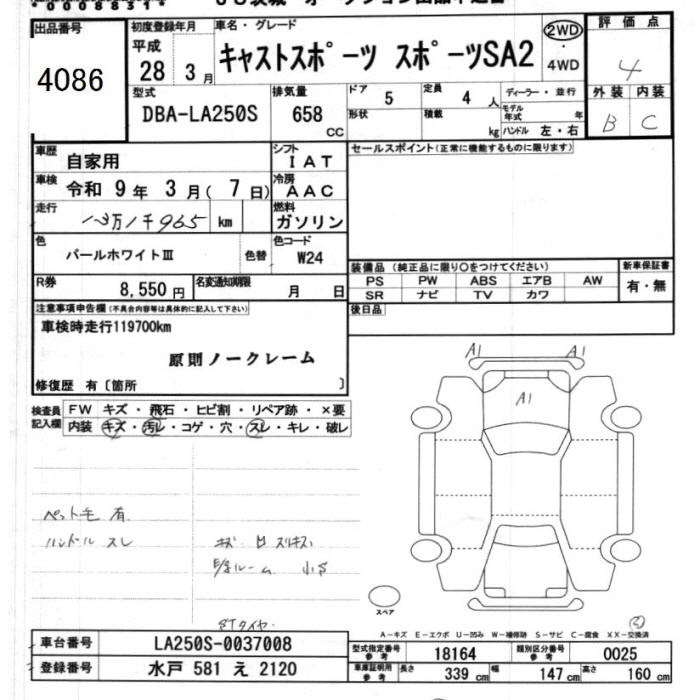 *00088314*
出品番号
4086
初度登録年月
平成
28 3月
車名・グレード
キャストスポーツ スポーツSA2
2WD
・
4WD
評価点
4
外装 内装
B C
型式
DBA-LA250S
排気量
658
CC
ドア 5
形状
定員 4 人
積載 kg
ディーラー・並行
モデル年式 年
ハンドル 左・右
車歴 自家用
シフト
IAT
セールスポイント(正常に機能するものに限ります)
車検 令和 9年 3月( 7日)
冷房
AAC
走行 km
燃料
ガソリン
色 パールホワイトⅢ 色替
色コード
W24
装備品 (純正品に限り○をつけてください)
新車保証書
PS PW ABS エアB AW
有・無
SR ナビ TV カワ
R券 8,550円
名変通知期限 月 日
後日品
注意事項申告欄(不具合内容等は具体的に記入して下さい)
車検時走行119700km
原則ノークレーム
修復歴 有〔箇所 〕
検査員
記入欄
FW キズ・飛石・ヒビ割・リペア跡・×要
内装 キズ・汚レ・コゲ・穴・スレ・キレ・破レ
A1 A1
A1
ペット毛 有
ハンドル スレ
スペア
A-キズ E-エクボ U-凹み W-補修跡 S-サビ C-腐食 XX-交換済
車台番号 LA250S-0037008
型式指定番号
参考
18164
類別区分番号
参考
0025
登録番号 水戸 581 え 2120
車庫証明用
参考
長さ 339 cm 幅 147 cm 高さ 160 cm